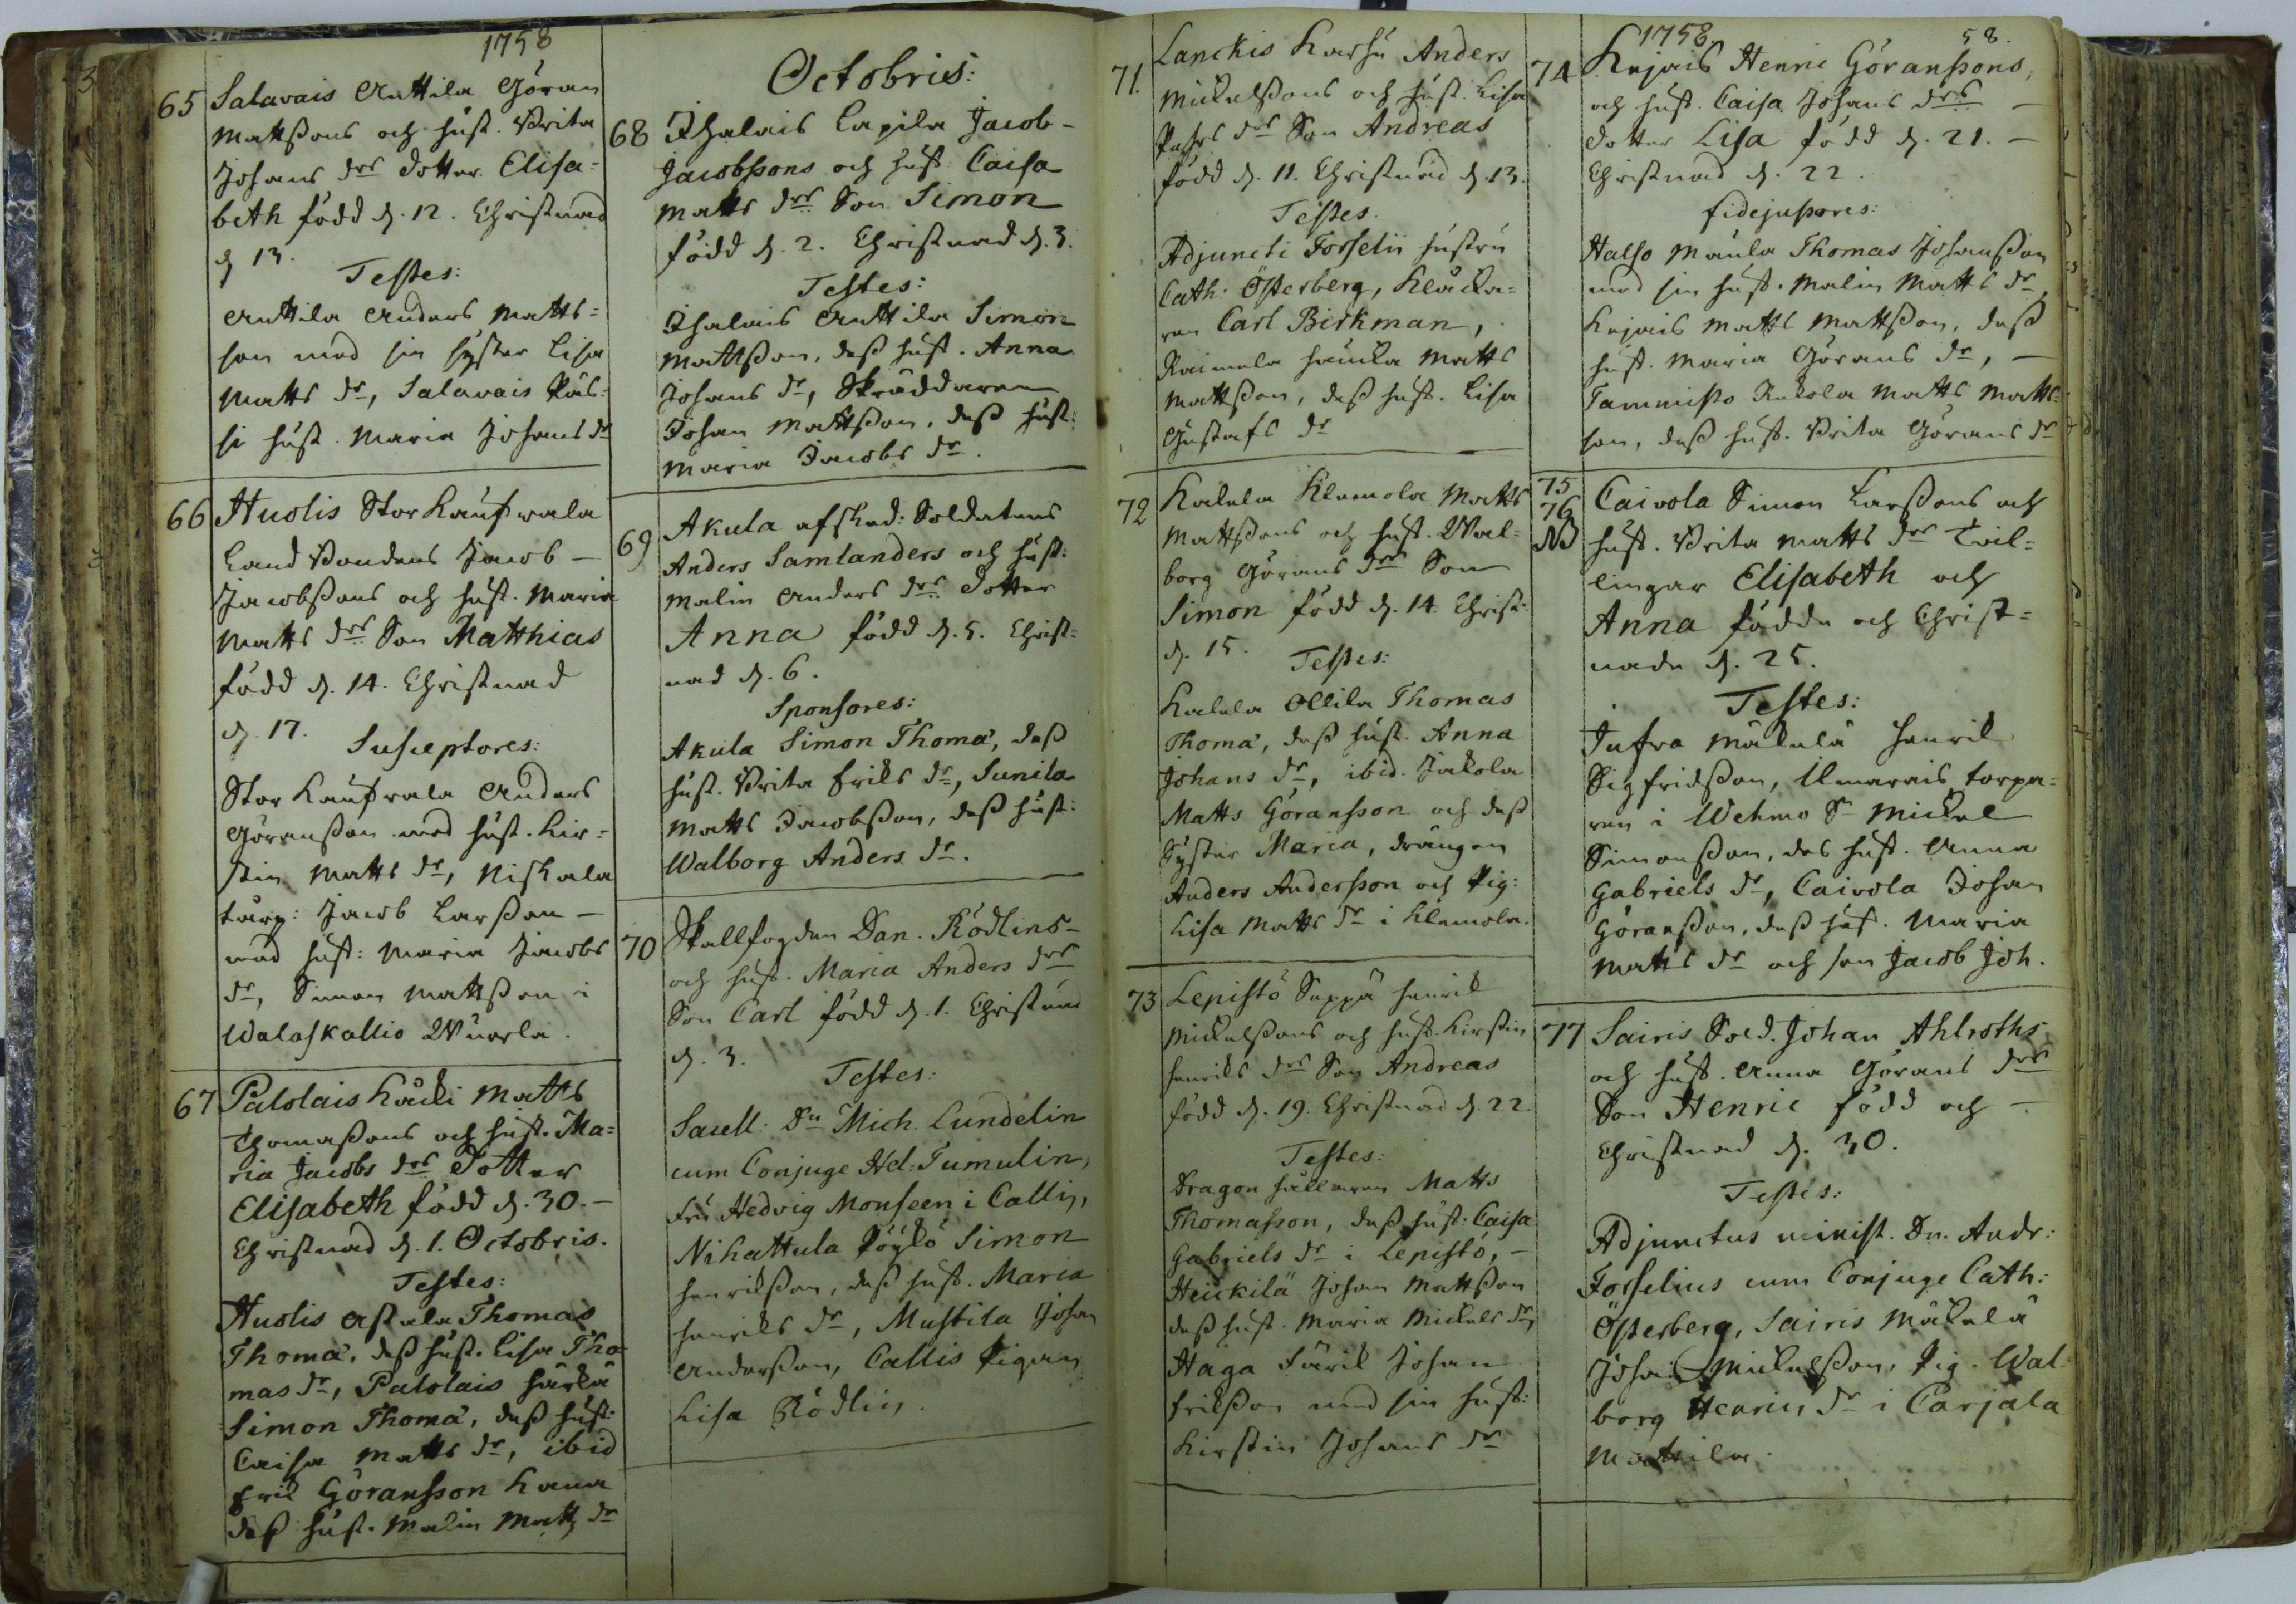 1758
65 Salavais Anttila Göran
Mattßons och hust. Brita
Johans drs dotter Elisa=
beth född d. 12. Christnad
d 13.
Testes:
Anttila Anders Matts=
son med sin syster Lisa
Matts dr, Salavais Pås=
si hust. Maria Johans dr
66 Huolis Stor Kaufwala
Land Bondens Jacob –
Jacobßons och hust. Maria
Matts drs Son Matthias
född d. 14. Christnad
d. 17.
Susceptores:
Stor Kaufvala Anders
Göranßon med hust. Kir=
stin Matts dr, Niskala
torp: Jacob Larßon –
med hust: Maria Jacobs
dr, Simon Mattßon i
Walaskallio Wuorla.
67 Palolais Kauki Matts
Thomaßons och hust. Ma=
ria Jacobs drs Dotter
Elisabeth född d. 30. –
Christnad d. 1. Octobris.
Testes:
Huolis Astala Thomas
Thomæ, deß hust. Lisa Tho=
mas dr, Palolais Härkä
Simon Thomæ, deß hust:
Caisa Matts dr, ibid
Erik Göransson Kana
deß hust. Malin Matts dr
Octobris:
68 Ihalais Lapila Jacob –
Jacobssons och hust. Caisa
Matts drs Son Simon
född d. 2. Christnad d. 3.
Testes:
Ihalais Anttila Simon
Mattßon, deß hust. Anna
Johans dr, Skräddaren
Johan Mattßon, deß hust:
Maria Jacobs dr.
69 Akula afsked: Soldatens
Anders Samlanders och hust:
Malin Anders drs Dotter
Anna född d. 5. Christ=
nad d. 6.
Sponsores:
Akula Simon Thomæ, deß
hust. Brita Eriks dr, Sunila
Matts Jacobßon, deß hust:
Walborg Anders dr.
70 Skallfogden Dan. Rödlins –
och hust. Maria Anders drs
Son Carl född d. 1. Christnad
d. 3.
Testes:
Sacell: Dn Mich. Lundelin
cum Conjuge Hel: Tumulin,
Fru Hedvig Monseen i Callis,
Nihattula Pöykö Simon
Henrikßon, deß hust. Maria
Henriks dr, Mustila Johan
Anderßon, Callis Pigan
Lisa Rödlin.
71. Lanckis Karhu Anders
Mickelßons och hust. Lisa
Pehrs drs Son Andreas
född d. 11. Christnad d. 13.
Testes.
Adjuncti Forselii hustru
Cath: Österberg, Klåcka=
ren Carl Birkman,
Raimela Hauka Matts
Mattßon, deß hust. Lisa
Gustafs dr
72 Kalela Klemola Matts
Mattßons och hust. Wal=
borg Görans drs Son
Simon född d. 14. Christ:
d. 15.
Testes:
Kalela Ollila Thomas
Thomæ, deß hust. Anna
Johans dr, ibid. Jakola
Matts Göransson och deß
Syster Maria, drängen
Anders Andersson och Pig:
Lisa Matts dr i Klemola.
73 Lepistö Seppä Henrik
Mickelßons och hust. Kirstin
Henriks drs Son Andreas
född d. 19. Christnad d. 22.
Testes:
Dragon hållaren Matts
Thomasson, deß hust: Caisa
Gabriels dr i Lepistö, –
Heickilä Johan Mattßon
deß hust. Maria Mickels dr,
Haga Färik Johan
Erikßon med sin hust:
Kirstin Johans dr
1758. 58.
74 Kejais Henric Göranßons,
och hust. Caisa Johans drs –
dotter Lisa född d. 21. –
Christnad d. 22.
fidejussores:
Halso Maula Thomas Johanßon
med sin hust. Malin Matts dr,
Kejais Matts Mattßon, deß
hust. Maria Görans dr, –
Tammisto Kukola Matts Matts=
son, deß hust. Brita Görans dr
75
76
NB
Caivola Simon Larßons och
hust. Brita Matts drs Tvil=
lingar Elisabeth och
Anna födde och Christ=
nade d. 25.
Testes:
Jufra Mäkelä Henrik
Sigfridßon, Ilmarais torpa=
ren i Wehmo Sn Mickel
Simonßon, des hust. Anna
Gabriels dr, Caivola Johan
Göranßon, deß hust. Maria
Matts dr och son Jacob Joh.
77 Sairis Sold. Johan Ahlroths
och hust. Anna Görans drs
Son Henric född och –
Christnad d. 30.
Testes:
Adjunctus minist. Dn. Andr:
Forselius cum Conjuge Cath:
Österberg, Sairis Mäkelä
Johan Mickelßon, Pig. Wal=
borg Henrics dr i Carjala
Mattila.